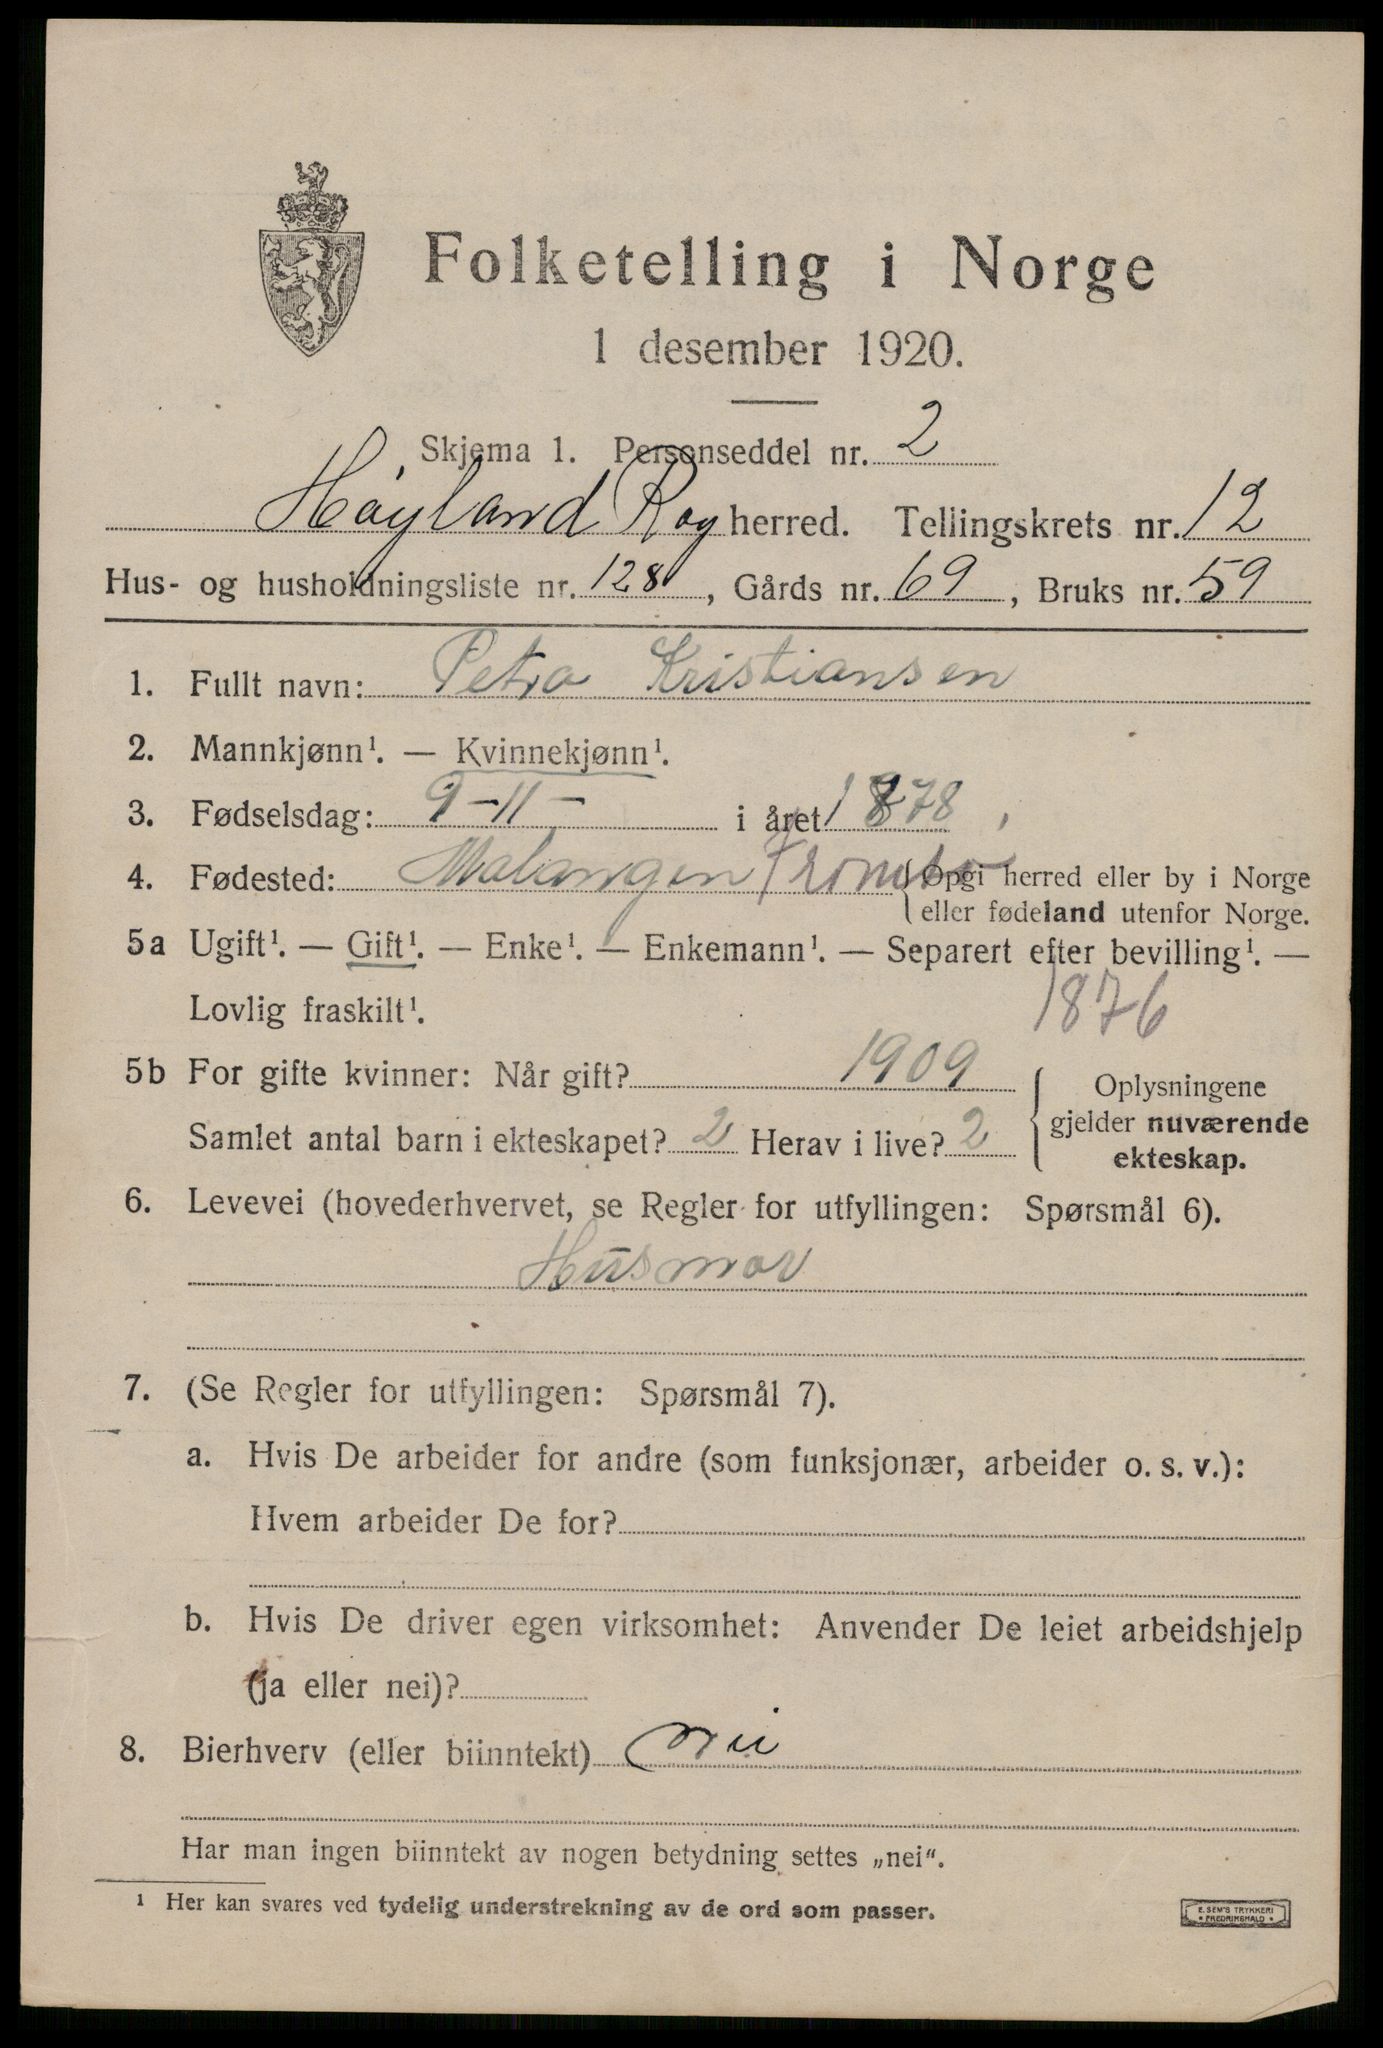 Folketelling i Norge
1 desember 1920.
Skjema 1. Personseddel nr. 2
Høyland Rog herred. Tellingskrets nr. 12
Hus- og husholdningsliste nr. 128, Gårds nr. 69, Bruks nr. 59
1. Fullt navn: Petra Kristiansen
2. Mannkjønn¹. — Kvinnekjønn¹.
3. Fødselsdag: 9-11- i året 1878,
4. Fødested: Malangen Tromsø
(Opgi herred eller by i Norge
eller fødeland utenfor Norge.
5a Ugift¹. — Gift¹. — Enke¹. — Enkemann¹. — Separert efter bevilling¹. —
Lovlig fraskilt¹. 1876
5b For gifte kvinner: Når gift? 1909
Samlet antal barn i ekteskapet? 2 Herav i live? 2
Oplysningene
gjelder nuværende
ekteskap.
6. Levevei (hovederhvervet, se Regler for utfyllingen: Spørsmål 6).
Husmor
7. (Se Regler for utfyllingen: Spørsmål 7).
a. Hvis De arbeider for andre (som funksjonær, arbeider o. s. v.):
Hvem arbeider De for?
b. Hvis De driver egen virksomhet: Anvender De leiet arbeidshjelp
(ja eller nei)?
8. Bierhverv (eller biinntekt) nei
Har man ingen biinntekt av nogen betydning settes „nei“.
¹ Her kan svares ved tydelig understrekning av de ord som passer.
E. SEM'S TRYKKERI
• FREDRIKSHALD •